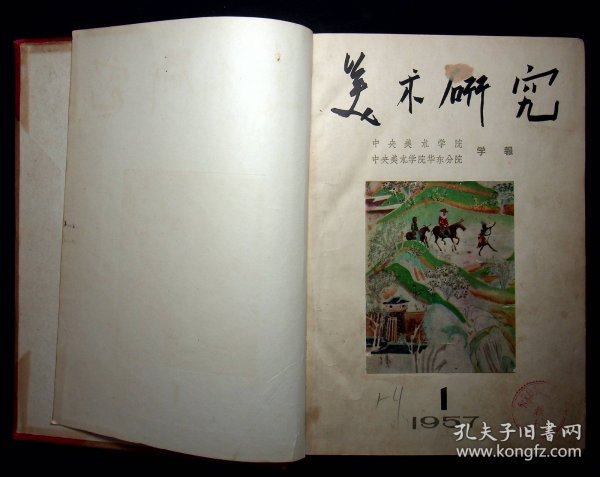 美术研究
中央美术学院
中央美术学院华东分院
学报
1
1957
1-4
孔夫子旧书网
www.kongfz.com